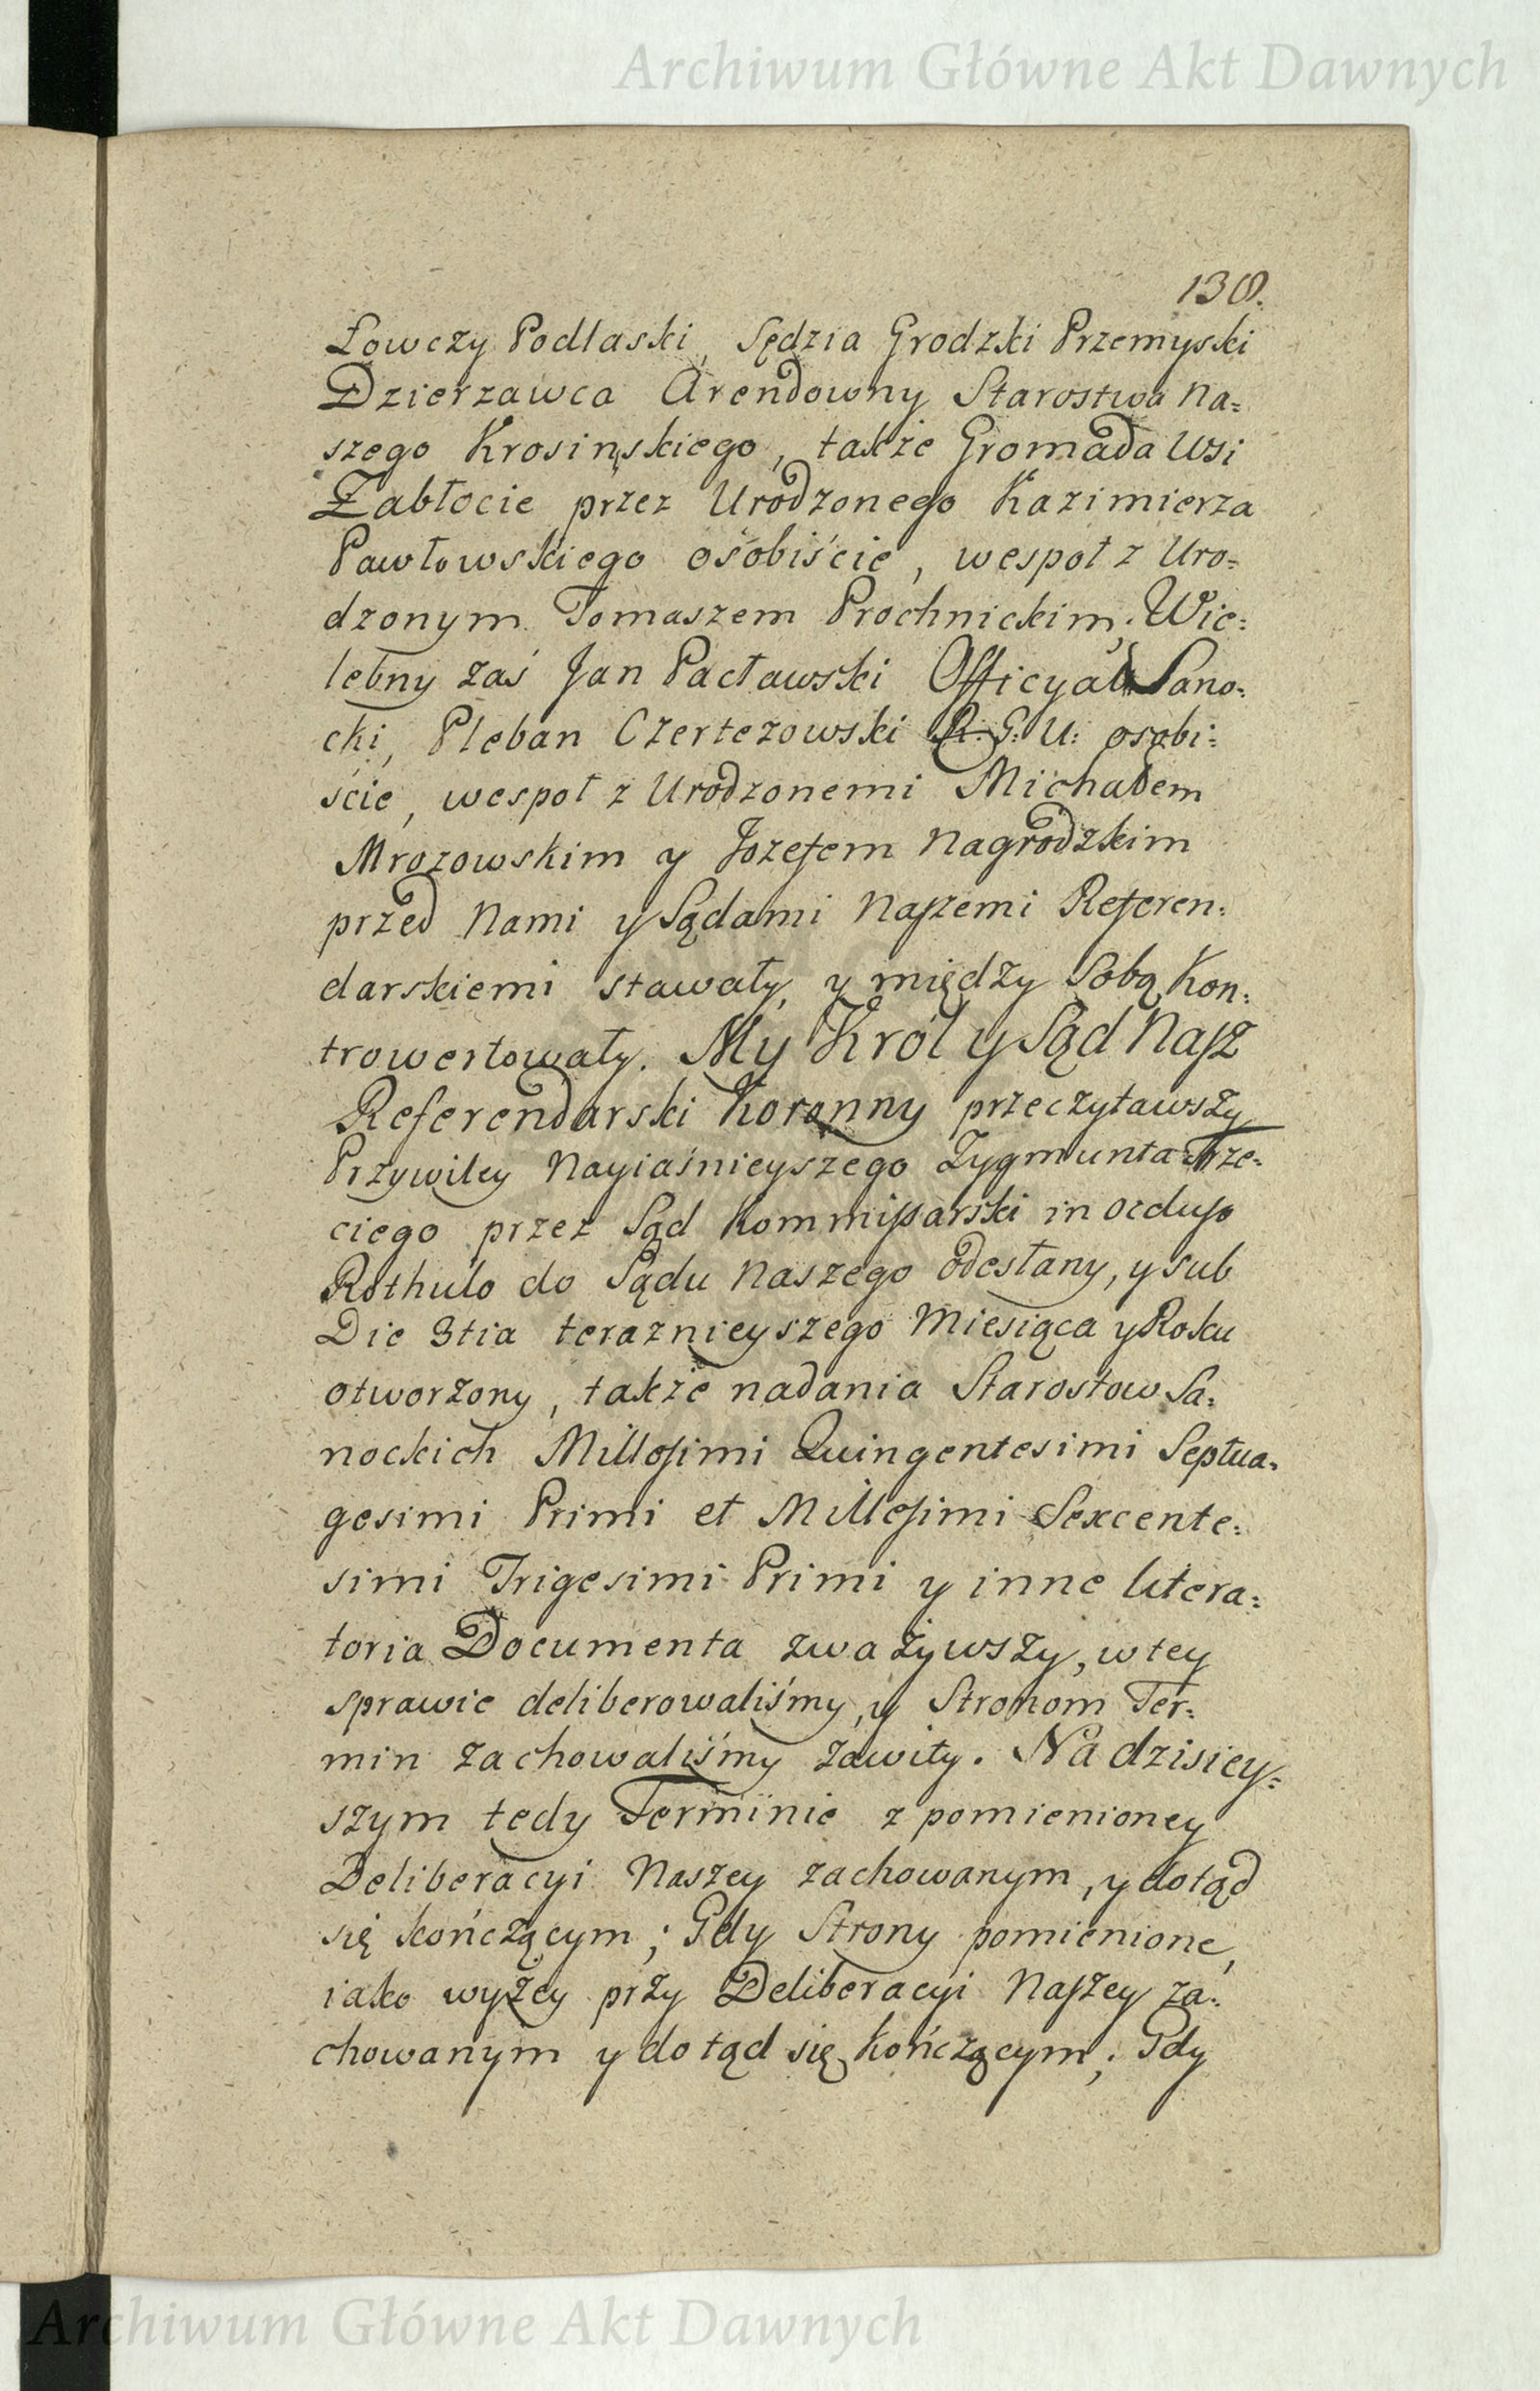 Archiwum Główne Akt Dawnych
138.
Łowczy Podlaski, Sędzia Grodzki Przemyski
Dzierzawca Arendowny Starostwa Na=
szego Krosinskiego, także Gromada Wsi
Zabłocie przez Urodzonego Kazimierza
Pawłowskiego osobiście, wespoł z Uro=
dzonym Tomaszem Prochnickim; Wie=
lebny zaś Jan Pacławski Officyał Sano=
cki, Pleban Czertezowski R. G. U: osobi=
ście, wespoł z Urodzonemi Michałem
Mrozowskim y Jozefem Nagrodzkim
przed Nami y Sądami Naszemi Referen=
darskiemi stawały, y między Sobą Kon=
trowertowały. My Król y Sąd Nasz
Referendarski Koronny przeczytawszy
Przywiley Nayiaśnieyszego Zygmunta Trze=
ciego przez Sąd Kommissarski in ocluso
Rothulo do Sądu Naszego odesłany, y sub
Die 3tia teraznieyszego Miesiąca y Roku
otworzony, także nadania Starostow Sa=
nockich Millesimi Quingentesimi Septua=
gesimi Primi et Millesimi Sexcente=
simi Trigesimi Primi y inne litera=
toria Documenta zważywszy, w tey
sprawie deliberowaliśmy, y Stronom Ter=
min zachowaliśmy zawity. Na dzisiey=
szym tedy Terminie z pomienioney
Deliberacyi Naszey zachowanym, y dotąd
się kończącym; Gdy Strony pomienione,
iako wyżey przy Deliberacyi Naszey za=
chowanym y do tąd się kończącym; Gdy
Archiwum Główne Akt Dawnych